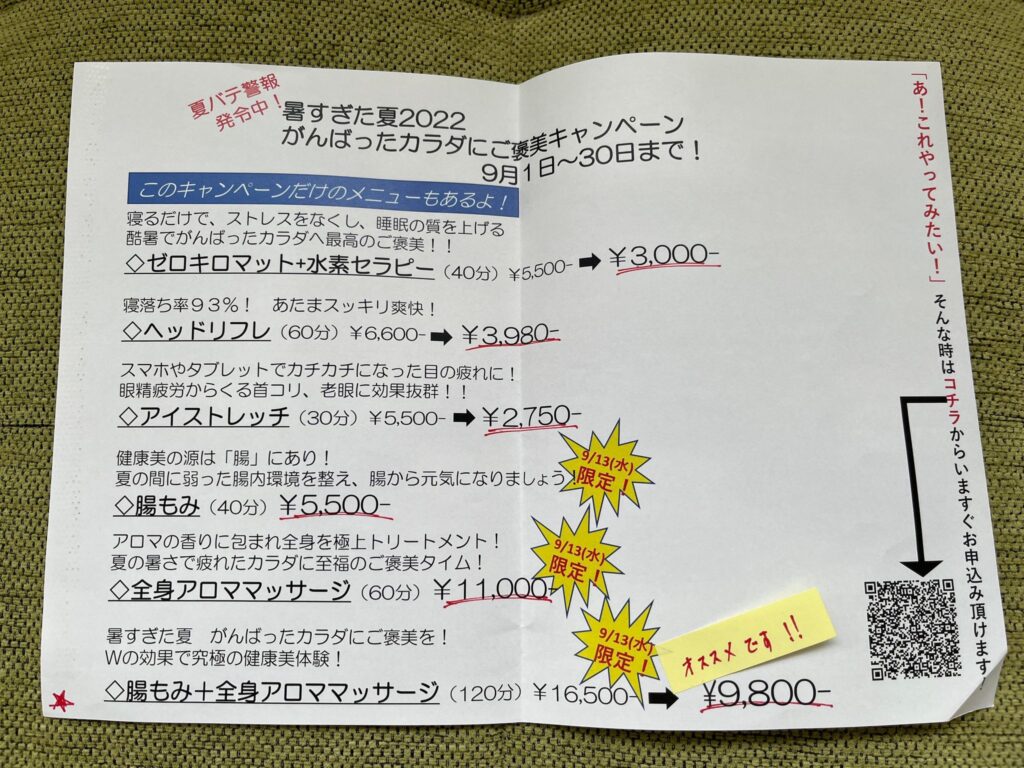 夏バテ警報
発令中！
暑すぎた夏2022
がんばったカラダにご褒美キャンペーン
9月１日～30日まで！
このキャンペーンだけのメニューもあるよ！
寝るだけで、ストレスをなくし、睡眠の質を上げる
酷暑でがんばったカラダへ最高のご褒美！！
◇ゼロキロマット+水素セラピー（40分）￥5,500-➡￥3,000-
寝落ち率９３％！　あたまスッキリ爽快！
◇ヘッドリフレ（60分）￥6,600-➡￥3,980-
スマホやタブレットでカチカチになった目の疲れに！
眼精疲労からくる首コリ、老眼に効果抜群！！
◇アイストレッチ（30分）￥5,500-➡￥2,750-
健康美の源は「腸」にあり！
夏の間に弱った腸内環境を整え、腸から元気になりましょう
9/13(水)
限定！
◇腸もみ（40分）￥5,500-
アロマの香りに包まれ全身を極上トリートメント！
夏の暑さで疲れたカラダに至福のご褒美タイム！
9/13(水)
限定！
◇全身アロママッサージ（60分）￥11,000-
暑すぎた夏　がんばったカラダにご褒美を！
Wの効果で究極の健康美体験！
9/13(水)
限定！
オススメです!!
◇腸もみ＋全身アロママッサージ（120分）￥16,500-➡￥9,800-
「あ！これやってみたい！」そんな時はコチラからいますぐお申込み頂けます